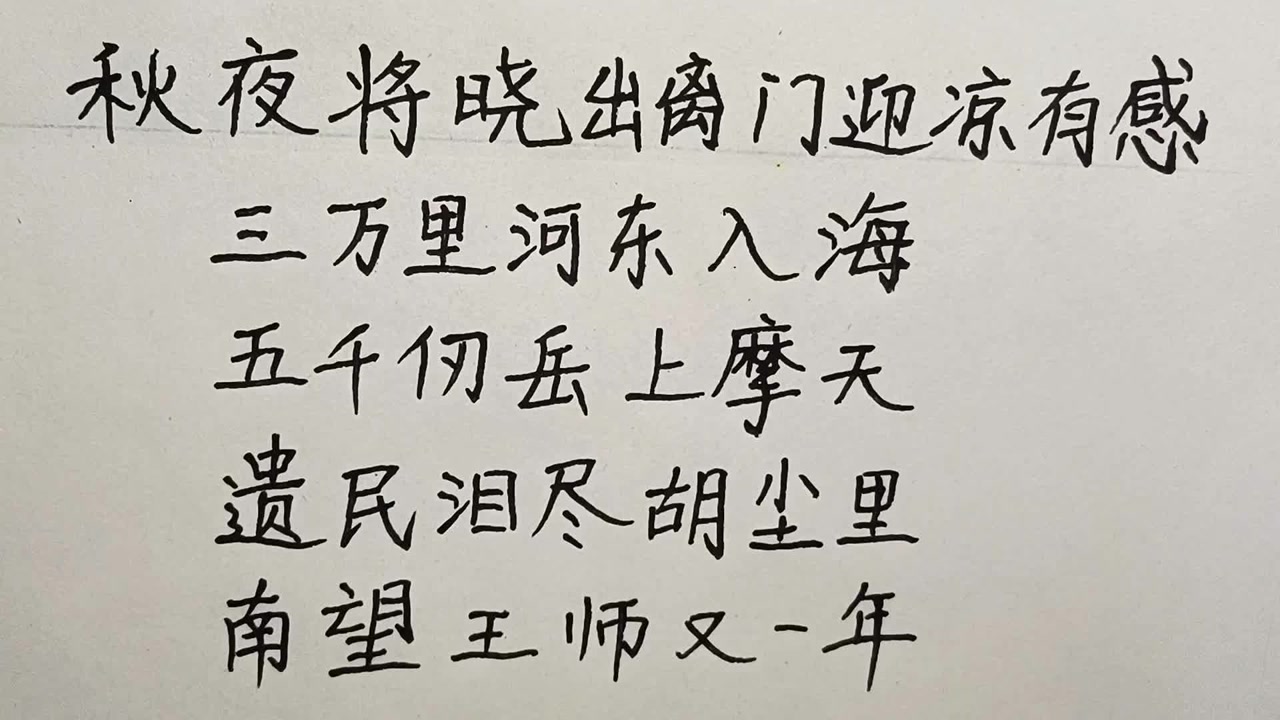 秋夜将晓出离门迎凉有感
三万里河东入海
五千仞岳上摩天
遗民泪尽胡尘里
南望王师又一年